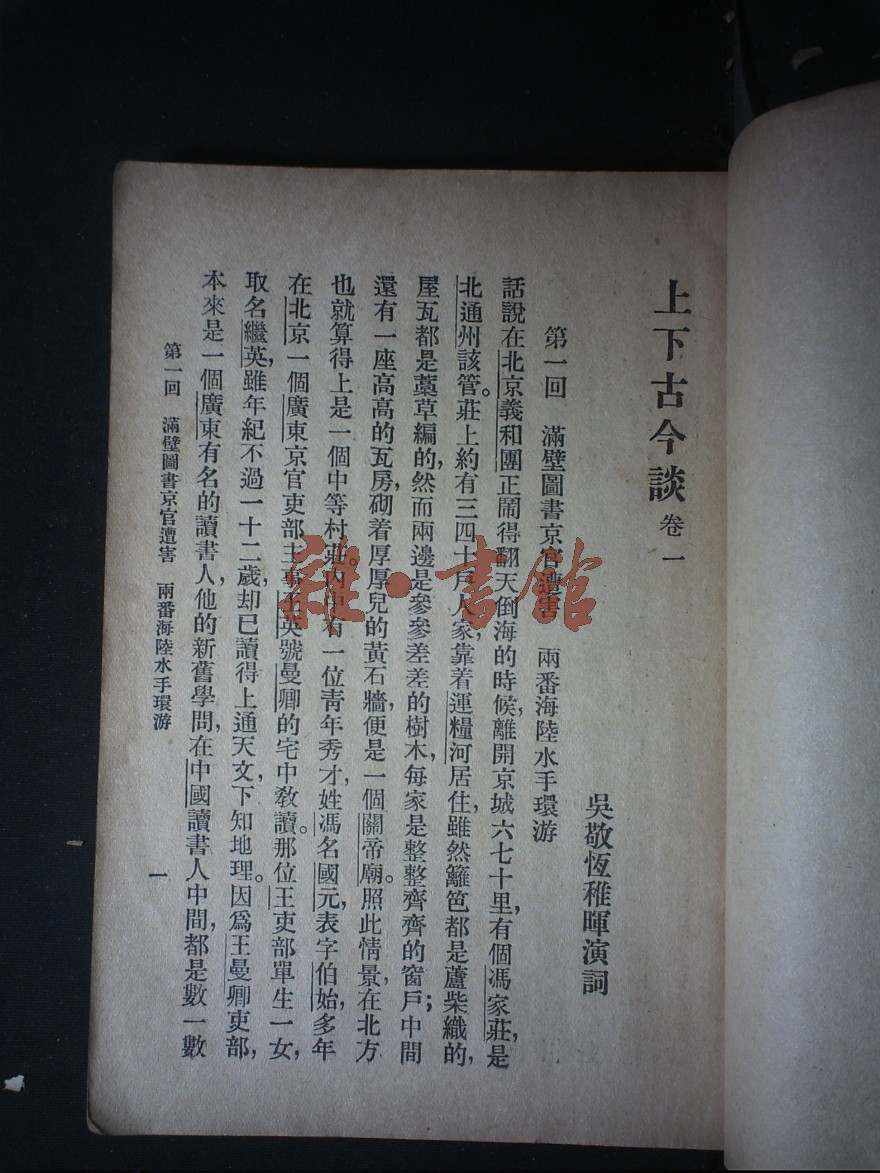 上下古今談 卷一
吳敬恆稚暉演詞
第一回 滿壁圖書京官遭害 兩番海陸水手環游
話說在北京義和團正鬧得翻天倒海的時候，離開京城六七十里，有個馮家莊，是
北通州該管。莊上約有三四十戶人家，靠着運糧河居住，雖然籬笆都是蘆柴織的，
屋瓦都是藁草編的，然而兩邊是參參差差的樹木，每家是整整齊齊的窗戶；中間
還有一座高高的瓦房，砌着厚厚兒的黃石牆，便是一個關帝廟。照此情景，在北方
也就算得上是一個中等村莊。內中有一位青年秀才，姓馮名國元，表字伯始，多年
在北京一個廣東京官吏部主事王英號曼卿的宅中教讀。那位王吏部單生一女，
取名繼英，雖年紀不過一十二歲，却已讀得上通天文，下知地理。因爲王曼卿吏部，
本來是一個廣東有名的讀書人，他的新舊學問，在中國讀書人中間，都是數一數
第一回 滿壁圖書京官遭害 兩番海陸水手環游
一
雜·書館